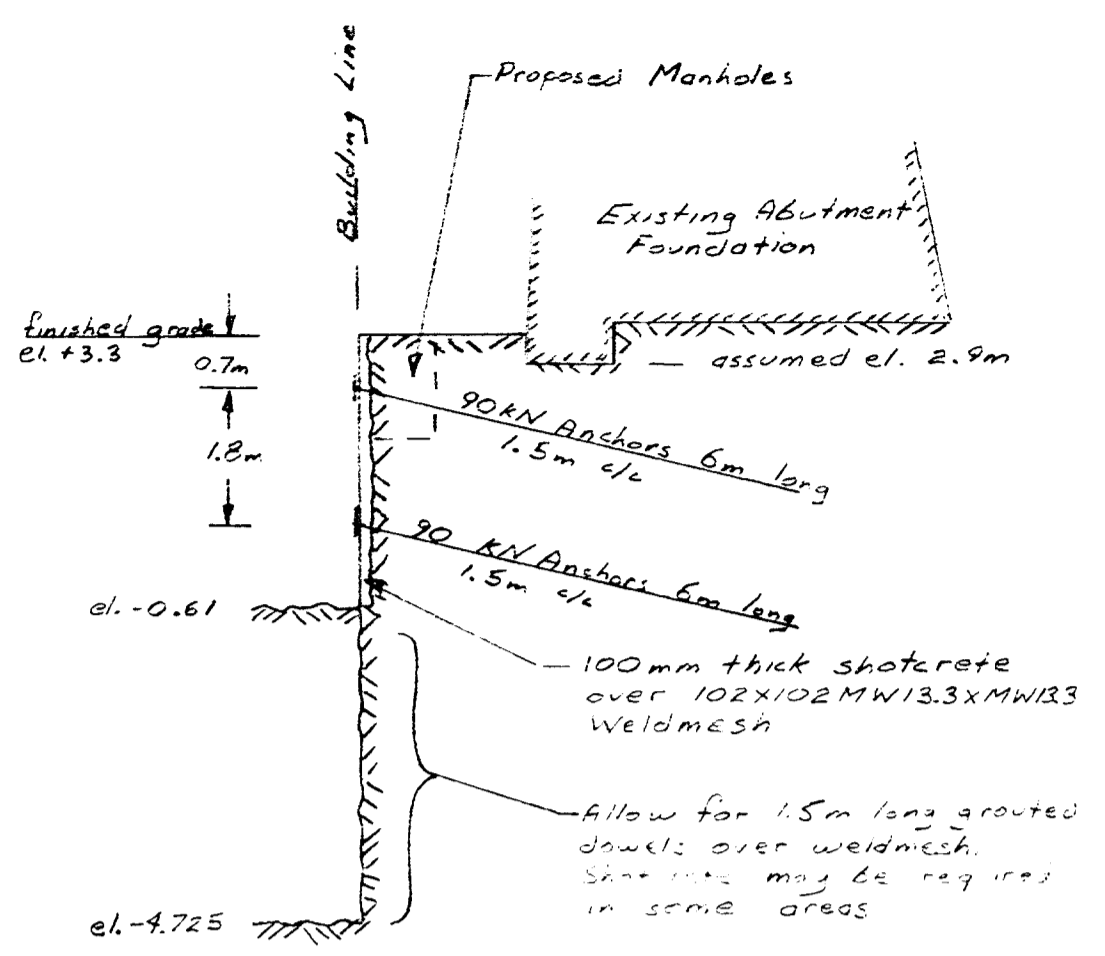 Building Line
Proposed Manholes
Existing Abutment
Foundation
finished grade
el. +3.3
0.7m
assumed el. 2.9m
1.8m
90kN Anchors 6m long
1.5m c/c
90 KN Anchors 6m long
1.5m c/c
el. -0.61
100mm thick shotcrete
over 102x102 MW13.3xMW13.3
Weldmesh
Allow for 1.5m long grouted
dowels over weldmesh.
Shotcrete may be required
in some areas
el. -4.725